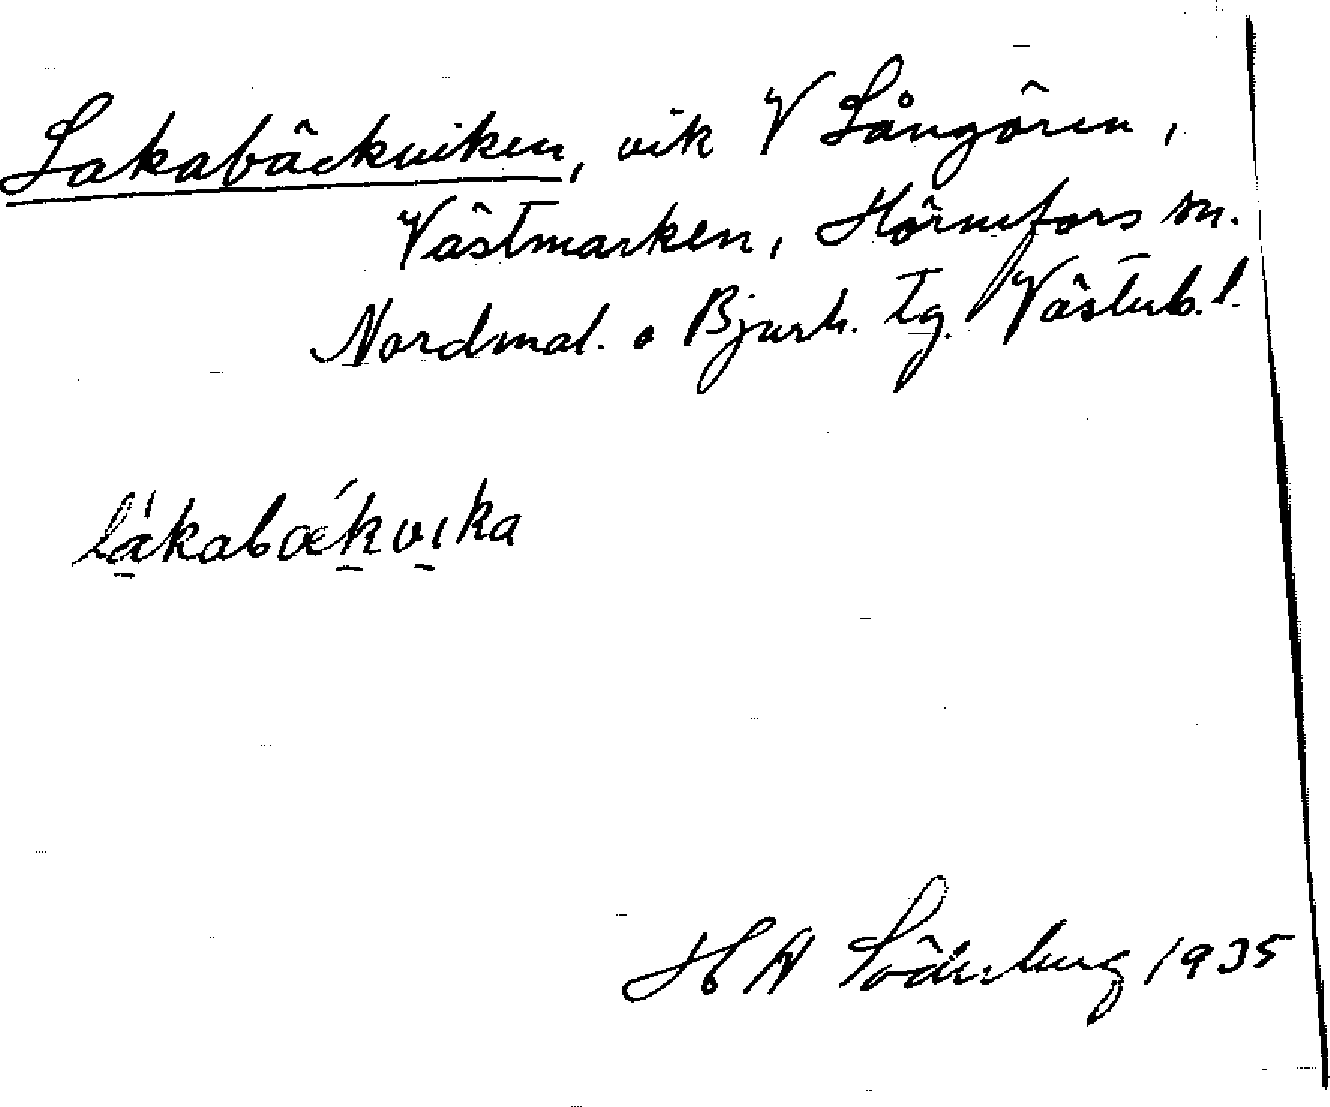 Lakabäckviken, vik V Långören,
Västmarken, Hörnefors sn.
Nordmal. o Bjurh. tg. Västerb. l.
la̱'kabǽḵvı̱ka
H A Söderberg 1935